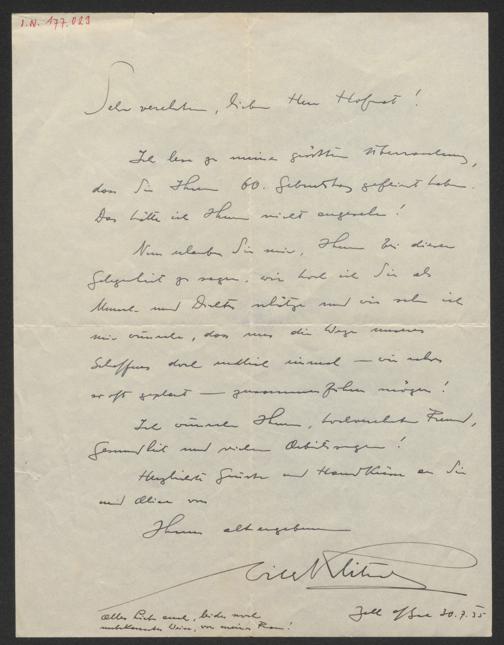 I.N. 177.023
Sehr verehrter, lieber Herr Hofrat!
Ich lese zu meiner größten Überraschung,
dass Sie Ihren 60. Geburtstag gefeiert haben.
Das hätte ich Ihnen nicht angesehen!
Nun erlauben Sie mir, Ihnen bei dieser
Gelegenheit zu sagen, wie hoch ich Sie als
Mensch und Dichter schätze und wie sehr ich
mir wünsche, dass uns die Wege unseres
Schaffens doch endlich einmal — wie schon
so oft geplant — zusammenführen mögen!
Ich wünsche Ihnen, hochverehrter Freund,
Gesundheit und vielen Arbeitssegen!
Herzlichste Grüsse und Handküsse an Sie
und von
Ihrem altergebenen
Alles Liebe auch, leider noch
unbekannter Weise, von meiner Frau!
Zell a/See 30.7.55